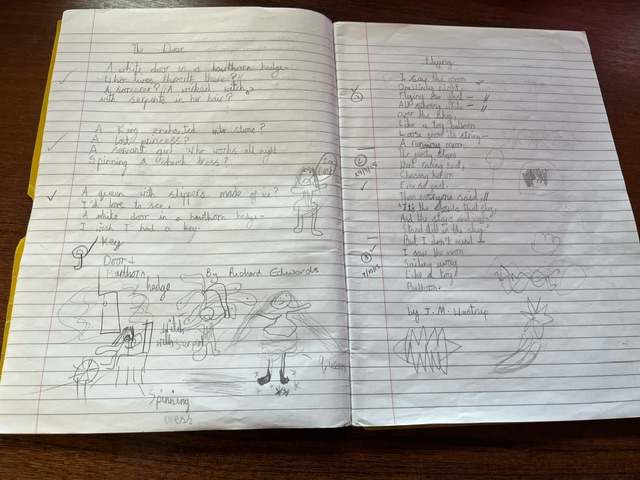 The Door
A white door in a hawthorn hedge-
Who lives through there?
A sorcerer? A wicked witch
with serpents in her hair?
A King enchanted into stone?
A lost princess?
A servant girl who works all night
Spinning a cobweb dress?
A queen with slippers made of ice?
I'd love to see.
A white door in a hawthorn hedge-
I wish I had a key.
Key
Door
Hawthorn
hedge
By Richard Edwards
with serpent
Spinning
dress
Flying
I saw the moon
One windy night,
Flying so fast-
All silvery white-
over the sky,
Like a toy balloon
Loose from its string-
A runaway moon.
The frosty stars
Went racing past,
Chasing her on
Ever so fast.
Then everyone said,
"It's the clouds that fly,
And the stars and moon
Stand still in the sky."
But I don't mind-
I saw the moon
Sailing away
Like a toy
Balloon.
by J. M. Westrup